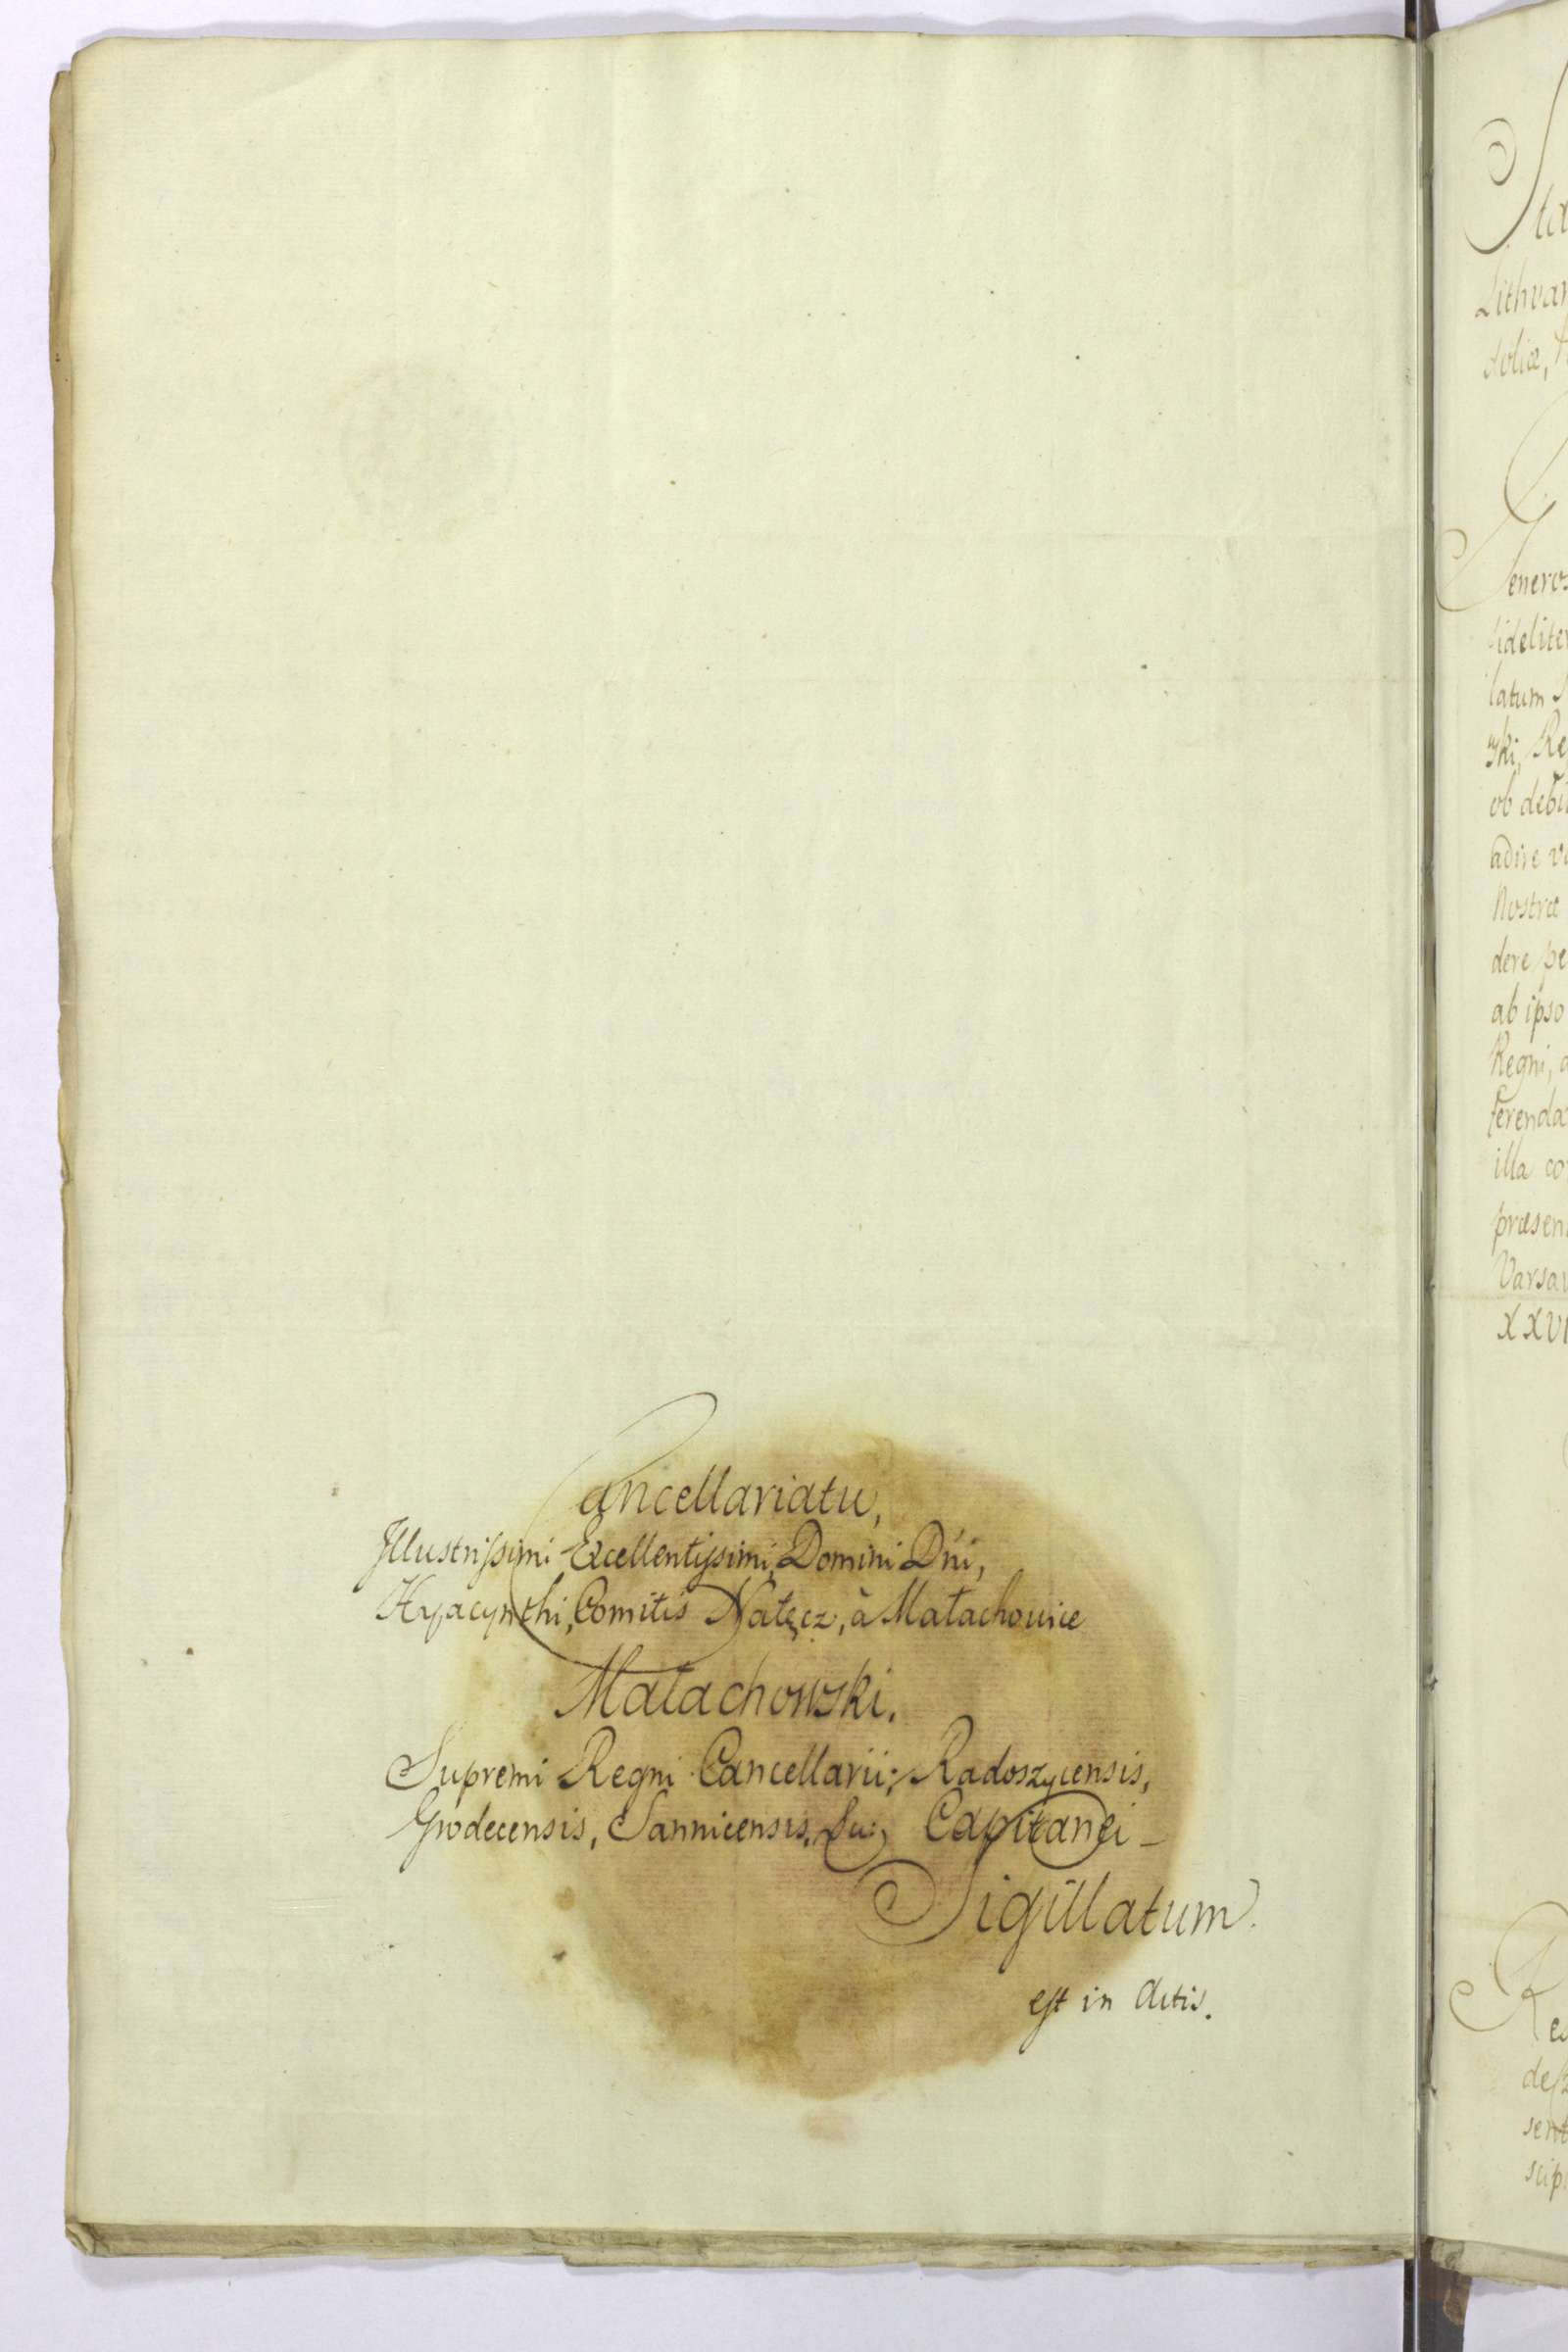 Cancellariatu,
Illustrissimi Excellentissimi, Domini Dni,
Hyacynthi, Comitis Nałęcz, à Małachowice
Małachowski.
Supremi Regni Cancellarii; Radoszycensis,
Grodecensis, Sannicensis, Capitanei _
Sigillatum.
est in Actis.
Sta
Lithvan
Generos
fidelite
latum
ski, Re
ob debi
adire v
Nostræ
dere pe
ab ipso
Regni,
ferenda
illa co
præsen
Varsav
XXVI
Re
sent
scip